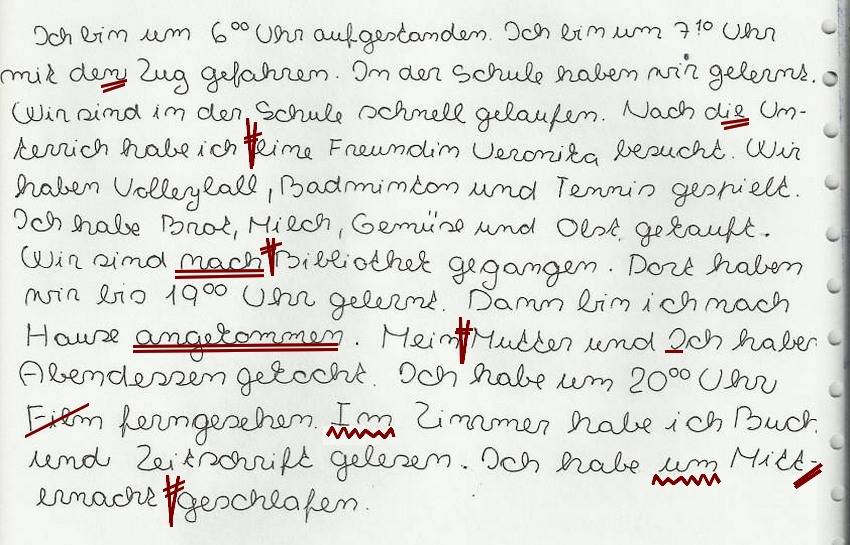 Ich bin um 6⁰⁰ Uhr aufgestanden. Ich bin um 7¹⁰ Uhr
mit den Zug gefahren. In der Schule haben wir gelernt.
Wir sind in der Schule schnell gelaufen. Nach die Un-
terrich habe ich eine Freundin Veronika besucht. Wir
haben Volleyball, Badminton und Tennis gespielt.
Ich habe Brot, Milch, Gemüse und Obst gekauft.
Wir sind nach Bibliothek gegangen. Dort haben
wir bis 19⁰⁰ Uhr gelernt. Dann bin ich nach
Hause angekommen. Mein Mutter und Ich haben
Abendessen gekocht. Ich habe um 20⁰⁰ Uhr
Film ferngesehen. Im Zimmer habe ich Buch
und Zeitschrift gelesen. Ich habe um Mitt-
ernacht geschlafen.